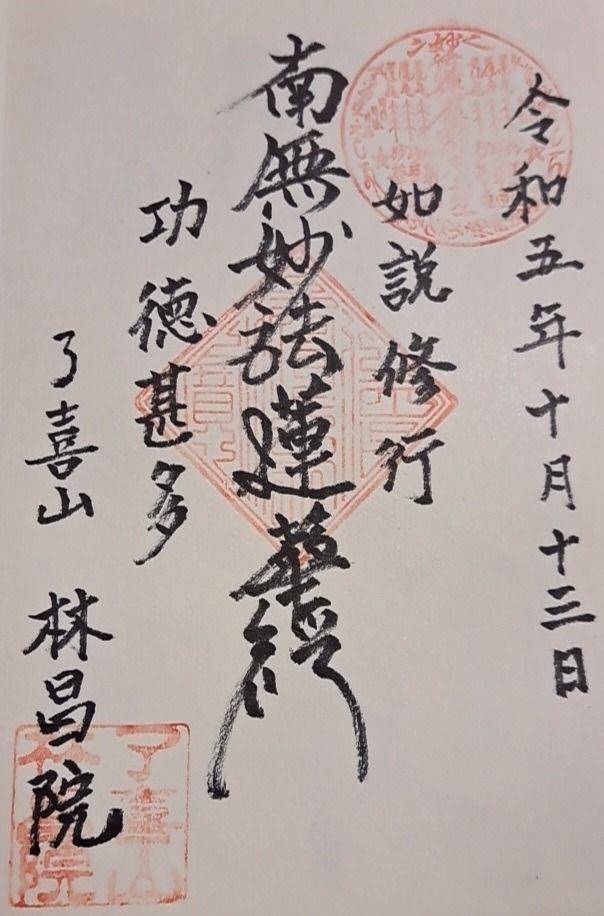 令和五年十月十三日
如説修行
南無妙法蓮華経
功徳甚多
了喜山 林昌院
了喜山
林昌院